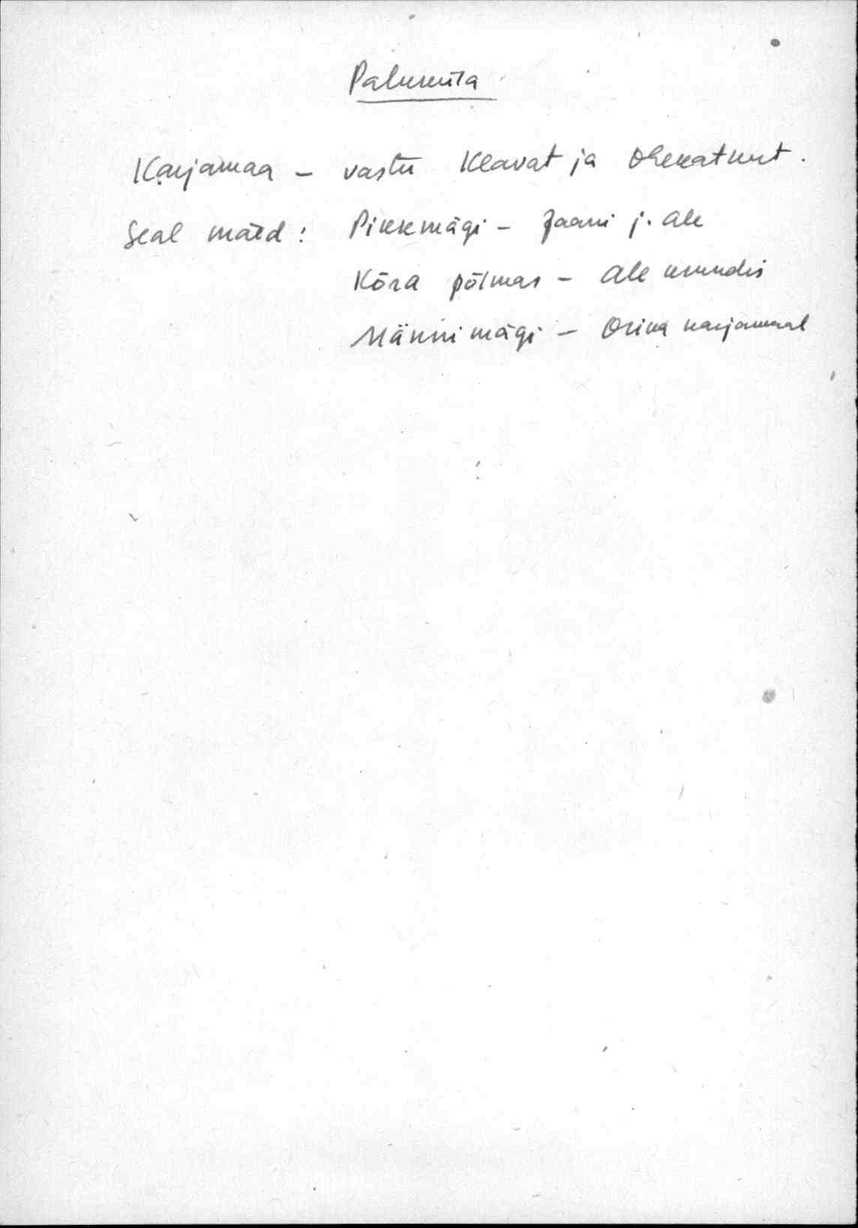 Paluküla
Karjamaa – vastu Keavat ja Ohekatkut.
Seal mäed: Pikkmägi – Jaani j. Ale
Kõra põlmas – Ale krundis
Männi mägi – Orina karjamaal